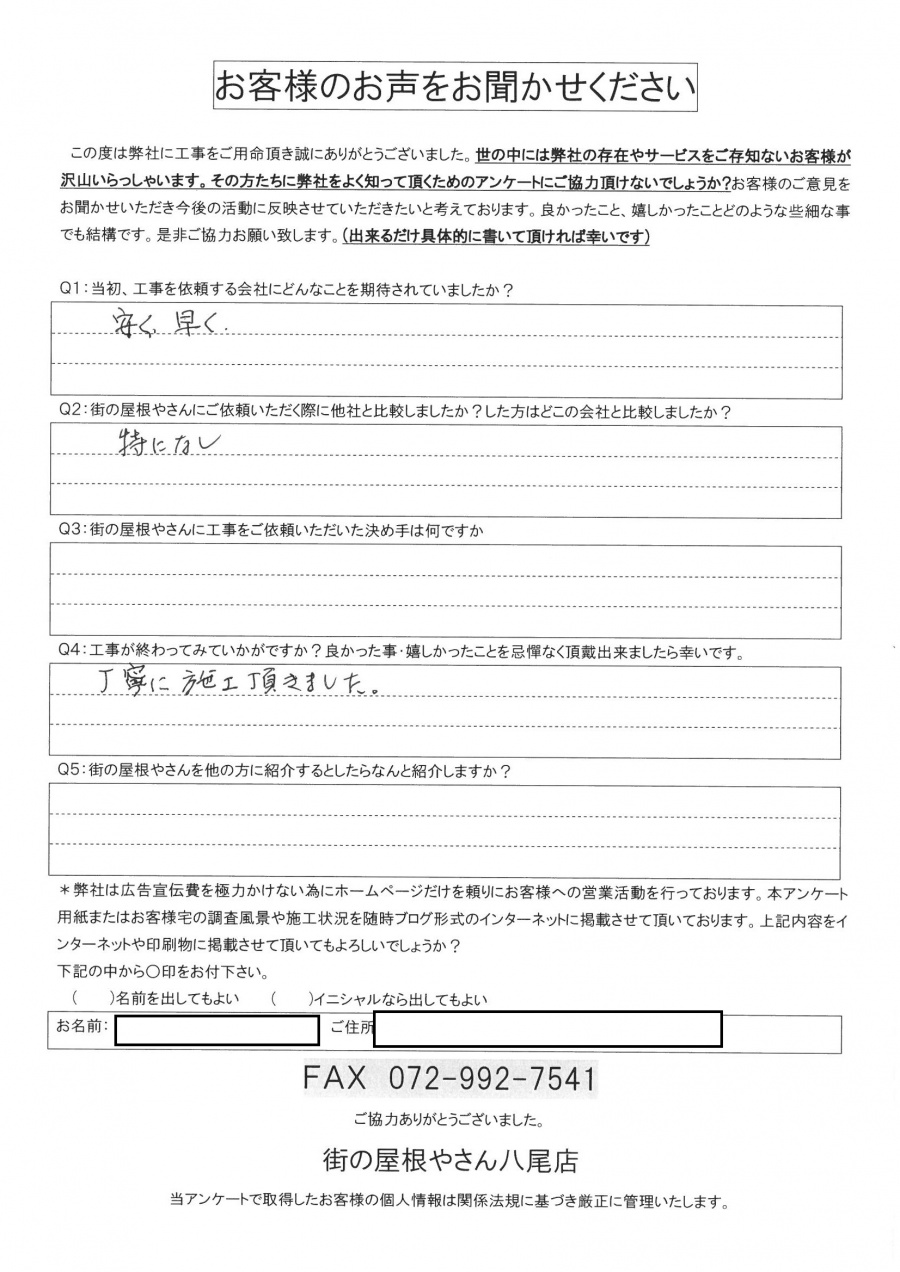 お客様のお声をお聞かせください
この度は弊社に工事をご用命頂き誠にありがとうございました。世の中には弊社の存在やサービスをご存知ないお客様が
沢山いらっしゃいます。その方たちに弊社をよく知って頂くためのアンケートにご協力頂けないでしょうか？お客様のご意見を
お聞かせいただき今後の活動に反映させていただきたいと考えております。良かったこと、嬉しかったことどのような些細な事
でも結構です。是非ご協力お願い致します。（出来るだけ具体的に書いて頂ければ幸いです）
Q1：当初、工事を依頼する会社にどんなことを期待されていましたか？
安く、早く.
Q2：街の屋根やさんにご依頼いただく際に他社と比較しましたか？した方はどこの会社と比較しましたか？
特になし
Q3：街の屋根やさんに工事をご依頼いただいた決め手は何ですか
Q4：工事が終わってみていかがですか？良かった事・嬉しかったことを忌憚なく頂戴出来ましたら幸いです。
丁寧に施工頂きました。
Q5：街の屋根やさんを他の方に紹介するとしたらなんと紹介しますか？
＊弊社は広告宣伝費を極力かけない為にホームページだけを頼りにお客様への営業活動を行っております。本アンケート
用紙またはお客様宅の調査風景や施工状況を随時ブログ形式のインターネットに掲載させて頂いております。上記内容をイ
ンターネットや印刷物に掲載させて頂いてもよろしいでしょうか？
下記の中から〇印をお付下さい。
（　　）名前を出してもよい　　（　　）イニシャルなら出してもよい
お名前：　ご住所
FAX 072-992-7541
ご協力ありがとうございました。
街の屋根やさん八尾店
当アンケートで取得したお客様の個人情報は関係法規に基づき厳正に管理いたします。